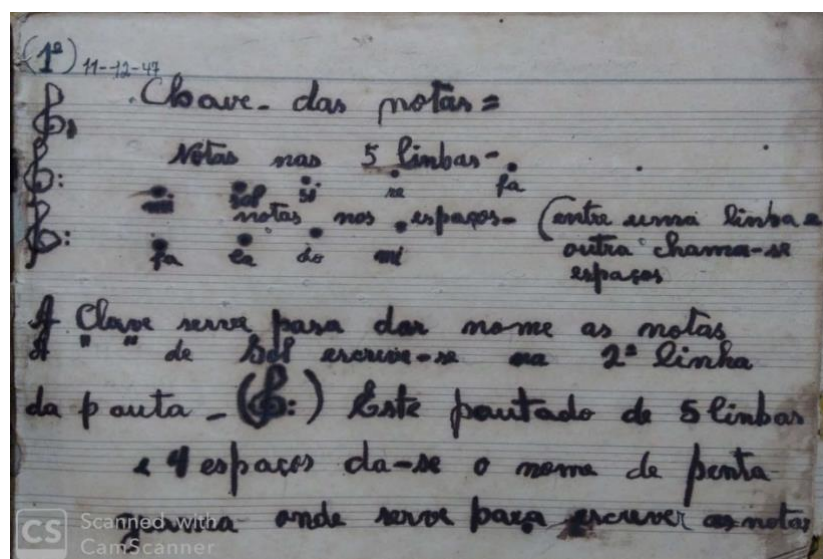 (1º) 11-12-47
Chave- das notas=
Notas nas 5 linhas-
mi sol si re fa
notas nos espaços- (entre uma linha e
outra chama-se
espaços
fa la do mi
A Clave serve para dar nome as notas
A " " de Sol escreve-se na 2ª linha
da pauta - ( :) Este pautado de 5 linhas
e 4 espaços da-se o nome de penta-
grama onde serve para escrever as notas
CS Scanned with
CamScanner